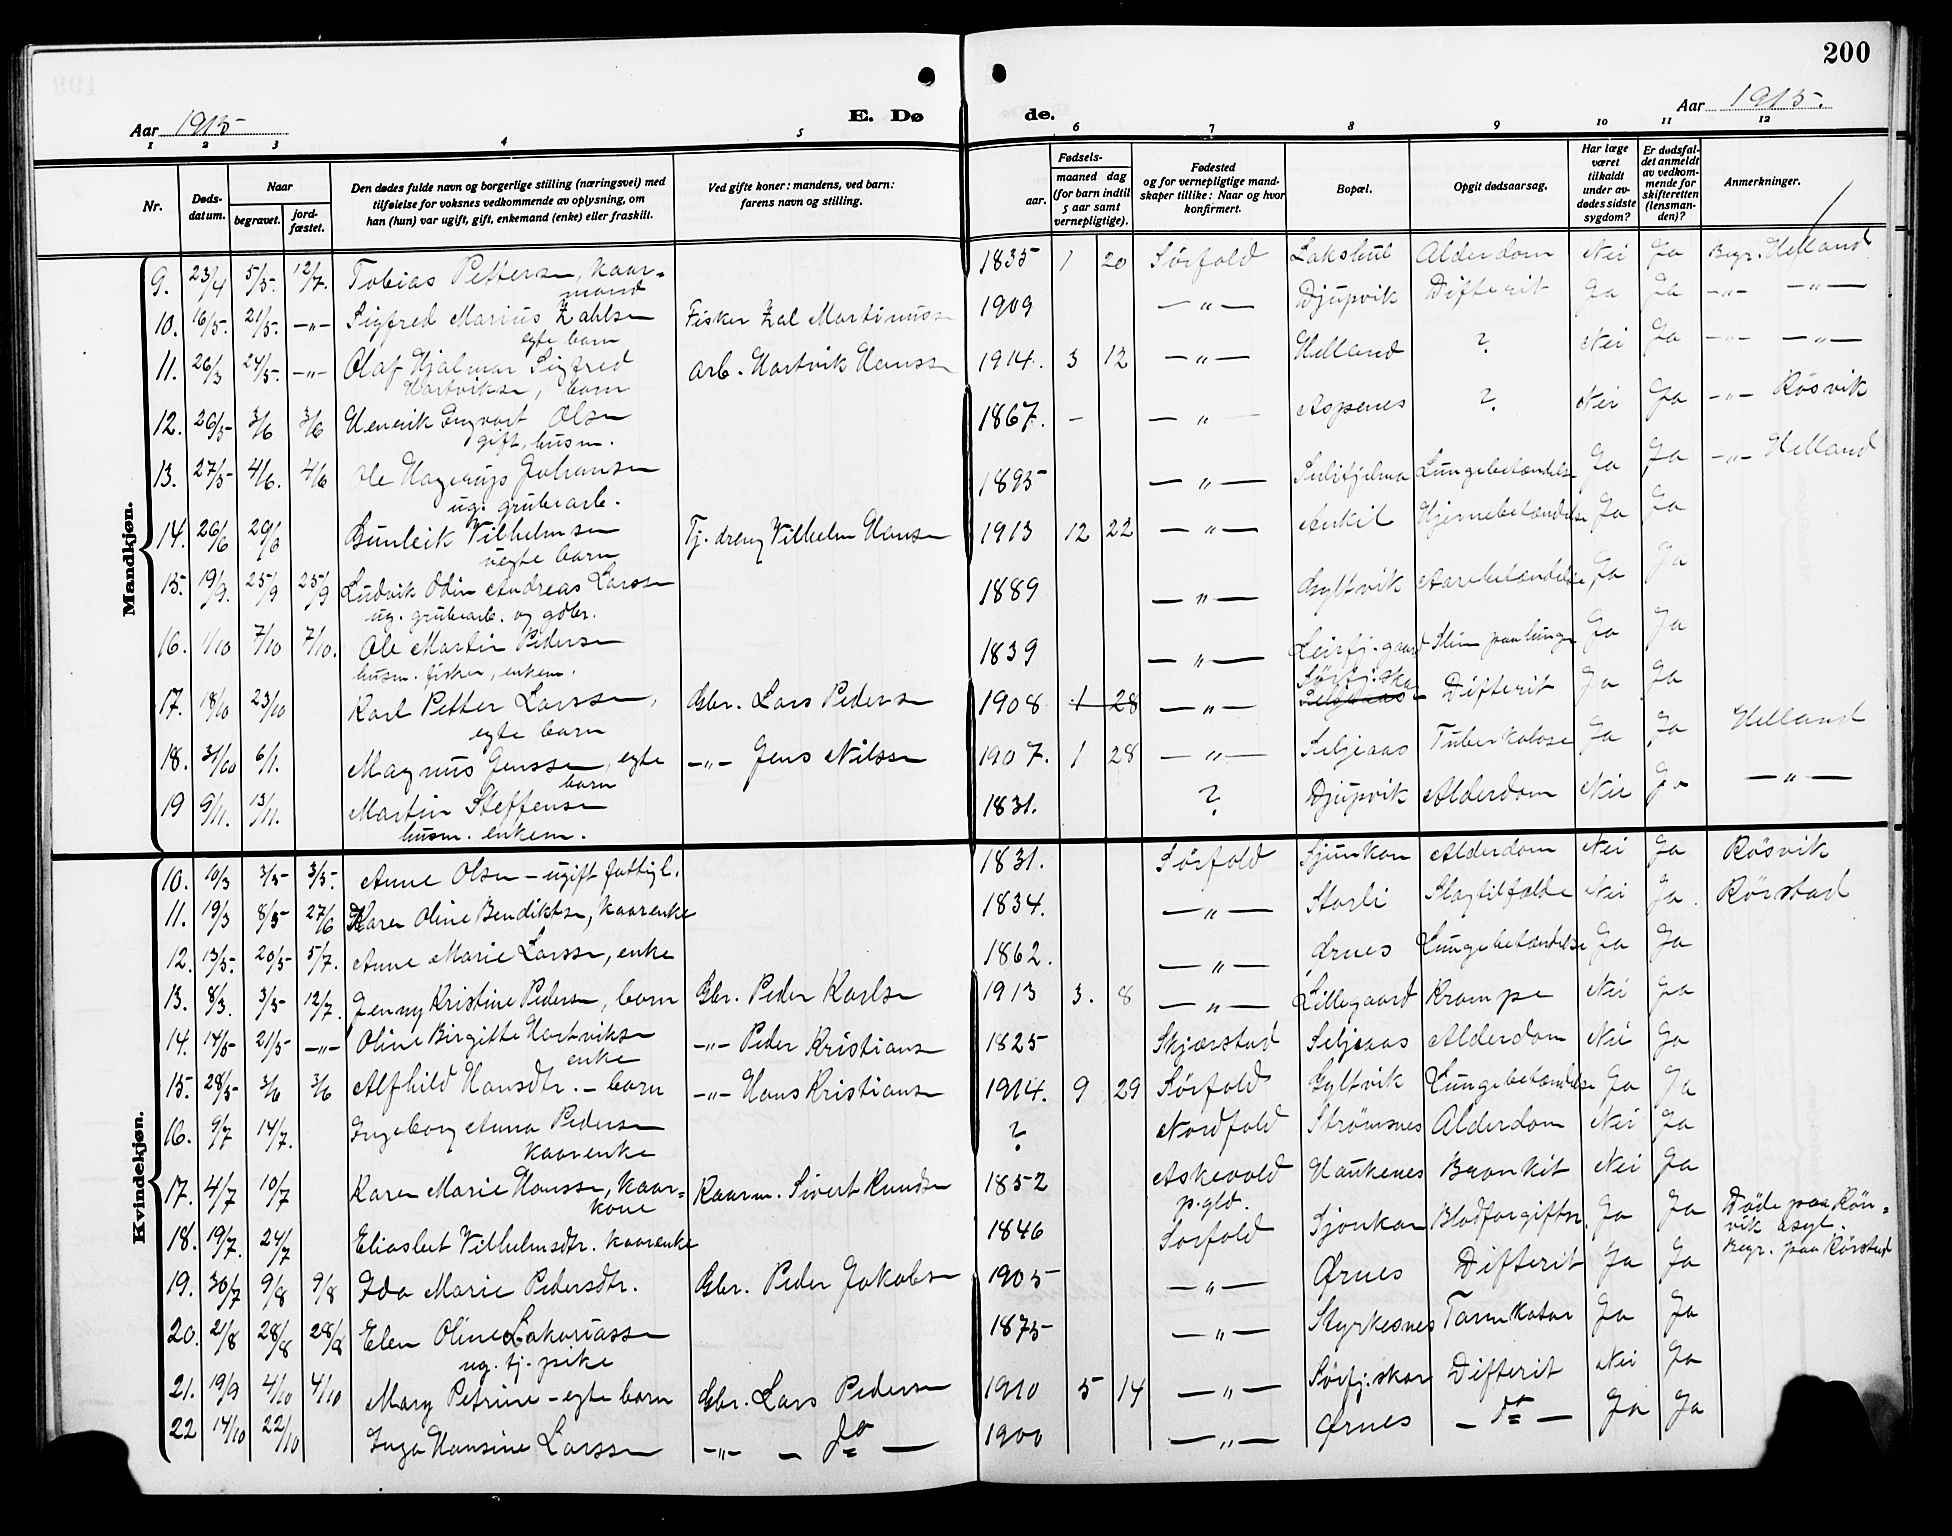 200
Aar 1915
E. Døde.
Aar 1915.
1 2 3 4 5 6 7 8 9 10 11 12
Nr.
Døds-
datum.
Naar
begravet.
jord-
fæstet.
Den dødes fulde navn og borgerlige stilling (næringsvei) med
tilføielse for voksnes vedkommende av oplysning, om
han (hun) var ugift, gift, enkemand (enke) eller fraskilt.
Ved gifte koner: mandens, ved barn:
farens navn og stilling.
Fødsels-
aar.
maaned dag
(for barn indtil
5 aar samt
vernepligtige).
Fødested
og for vernepligtige mand-
skaper tillike: Naar og hvor
konfirmert.
Bopæl.
Opgit dødsaarsag.
Har læge
været
tilkaldt
under av-
dødes sidste
sygdom?
Er dødsfal-
det anmeldt
av vedkom-
mende for
skifteretten
(lensman-
den)?
Anmerkninger.
Mandkjøn.
9. 23/4 5/5. 12/7. Tobias Pettersen, kaar- 1835 1 20 Sørfold Lakshul Alderdom Nei Ja Begr. Helland
mand
10. 16/5. 21/5. -"- Sigfred Marius Zahlsen Fisker Zal Martinussen 1909 -"- Djupvik Difterit Ja Ja -"- -"-
egte barn
11. 26/3 24/5. -"- Olaf Hjalmar Sigfred arb. Hartvik Hansen 1914. 3 12 -"- Helland ? Nei Ja -"- -"-
Hartviksen, barn
12. 26/5 3/6 3/6 Henrik Engvart Olsen 1867. - -"- Aspenes ? Nei Ja -"- Røsvik
gift, husm.
13. 27/5 4/6. 4/6 Ole Hagerup Johansen 1895 -"- Sulitjelma Lungebetændelse Ja Ja -"- Helland
ug. grubearb.
14. 26/6 29/6 Gunleik Vilhelmsen Tj. dreng Vilhelm Hansen 1913 12 22 -"- Hjernebetændelse Ja Ja
uegte barn
15. 19/9. 25/9 25/9 Ludvik Odin Andreas Larssen 1889 -"- Gyltvik Aarebetændelse Ja Ja
ug. grubearb. og gdbr.
16. 1/10 7/10 7/10. Ole Martin Pedersen 1839 -"- Leirfj.gaard Slim paa lunge Ja Ja
husm. fisker, enkem.
17. 18/10 23/10 Karl Petter Larssen, Gbr. Lars Pedersen 1908 1 28 -"- Sørfj.skar Difterit Ja Ja
egte barn
18. 31/10 6/1. Magnus Jenssen, egte -"- Jens Nilssen 1907. 1 28 -"- Seljeaas Tuberkolose Ja Ja Helland
barn
19 9/11. 13/11. Martin Steffensen 1831. ? Djupvik Alderdom Nei Ja -"-
husm. enkem.
Kvindekjøn.
10. 10/3 3/5 3/5. Anne Olsen - ugift fattigl. 1831. Sørfold Sjunkan Alderdom Nei Ja Røsvik
11. 19/3 8/5 27/6 Karen Oline Bendiktsen, kaarenke 1834. -"- Storli Slagtilfælde Nei Ja. Rørstad
12. 13/5. 20/5 5/7. Anne Marie Larssen, enke 1862. -"- Ørnes Lungebetændelse Ja Ja
13. 8/3. 3/5 12/7. Jenny Kristine Pedersen, barn Gbr. Peder Karlsen 1913 3. 8 -"- Lillegaard Krampe Nei Ja
14. 14/5 21/5 -"- Oline Birgitte Hartviksen -"- Peder Kristiansen 1825 Skjærstad Seljeaas Alderdom Nei Ja
enke
15. 28/5 3/6 3/6 Alfhild Hansdtr. - barn -"- Hans Kristiansen 1914. 9 29 Sørfold Gyltvik Lungebetændelse Ja Ja
16. 9/7 14/7. Ingeborg Anna Pedersen ? Nordfold Strømsnes Alderdom Nei Ja
kaarenke
17. 4/7 10/7 Karen Marie Hanssen, kaar- Kaarm. Sivert Knudsen 1852 Askevold Haukenes Bronkit Nei Ja
kone p.gld.
18. 19/7. 24/7 Eliasbet Vilhelmsdtr. kaarenke 1846 Sørfold Sjonkan Blodforgiftn. Ja Ja Døde paa Røn-
vik asyl.
Begr. paa Rørstad
19. 30/7 9/8 9/8 Ida Marie Pedersdtr. Gbr. Peder Jakobsen 1905 -"- Ørnes Difterit Ja Ja
20. 21/8 28/8 28/8 Elen Oline Zakariassen 1875 -"- Styrkesnes Tarmkatar Ja Ja
ug. tj. pike
21. 19/9 4/10 4/10 Mary Petrine - egte barn Gbr. Lars Pedersen 1910 5 14 -"- Sørfj.skar Difterit Nei Ja
22 14/10 22/10 Inga Hansine Larssen -"- - do - 1900 -"- Ørnes - do - Ja Ja